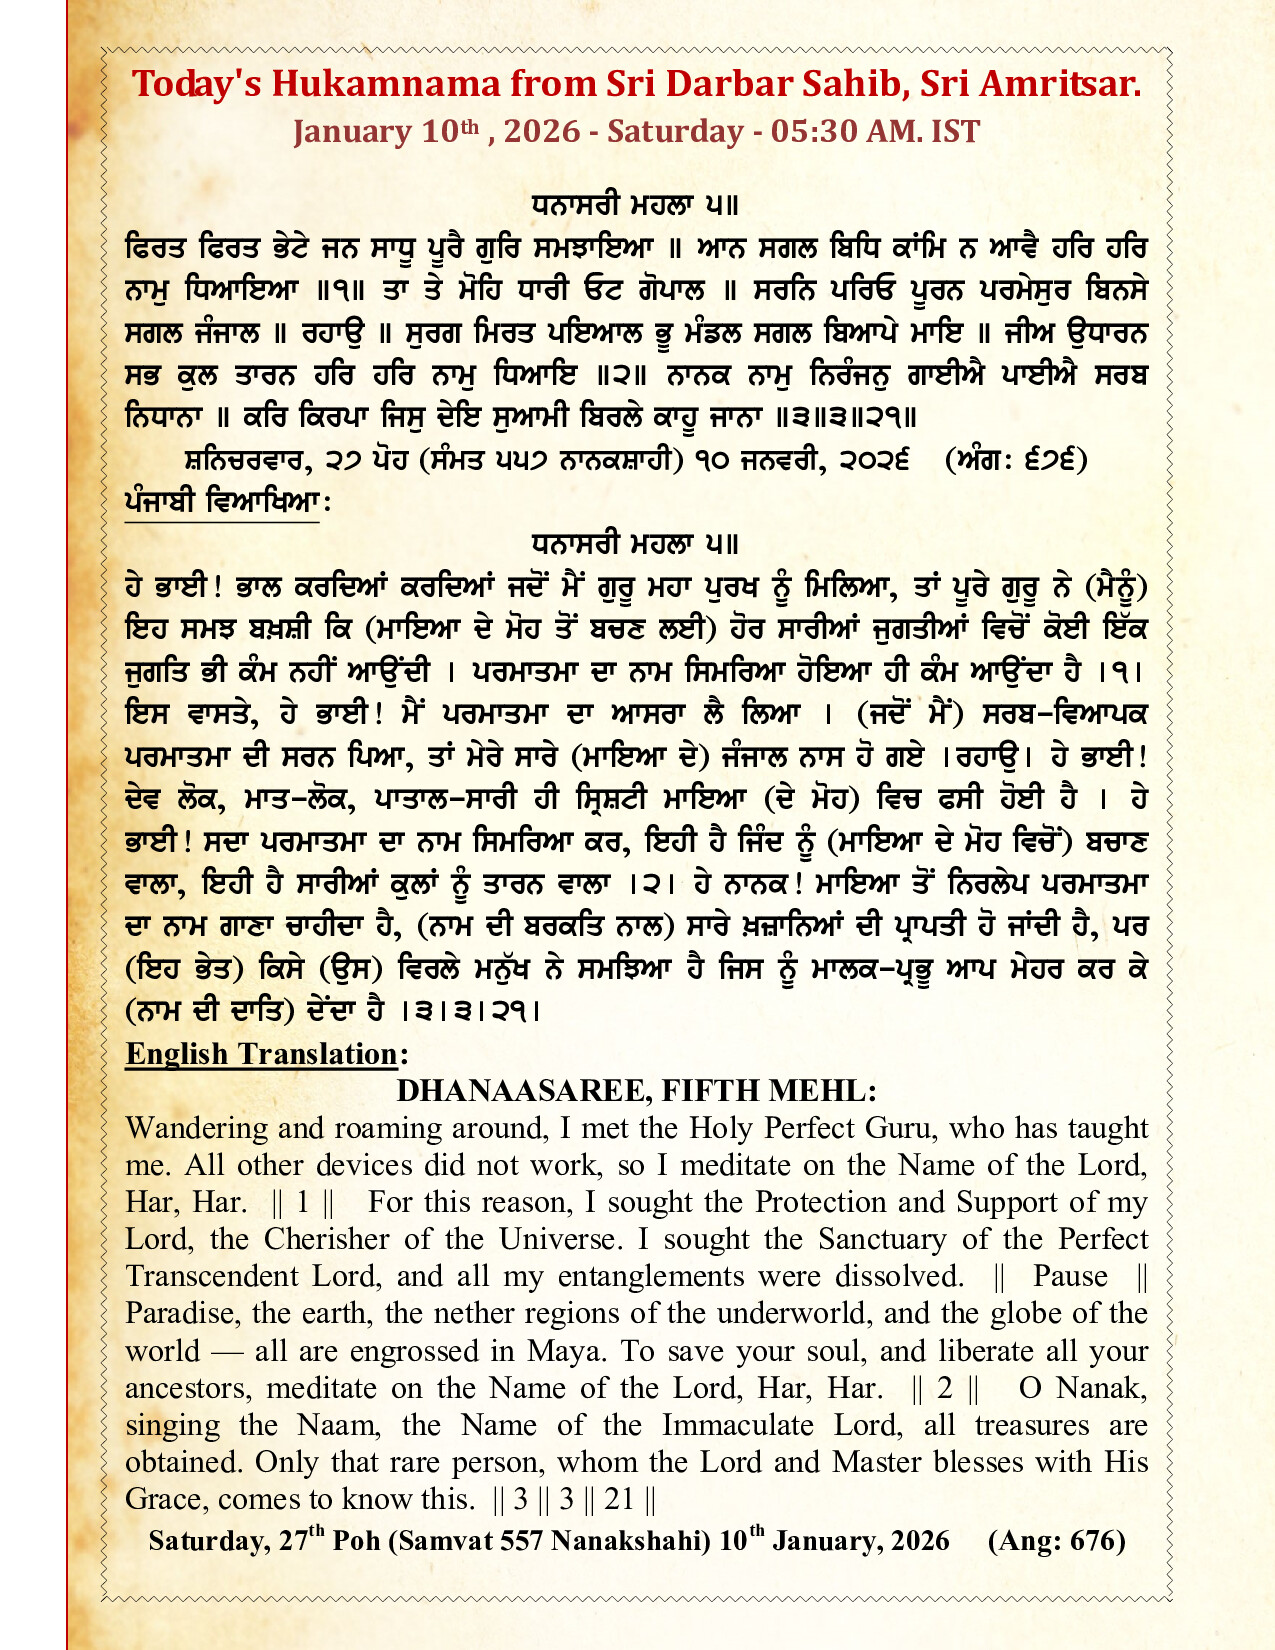 Today's Hukamnama from Sri Darbar Sahib, Sri Amritsar.
January 10th , 2026 - Saturday - 05:30 AM. IST
ਧਨਾਸਰੀ ਮਹਲਾ ੫॥
ਫਿਰਤ ਫਿਰਤ ਭੇਟੇ ਜਨ ਸਾਧੂ ਪੂਰੈ ਗੁਰਿ ਸਮਝਾਇਆ ॥ ਆਨ ਸਗਲ ਬਿਧਿ ਕਾਂਮਿ ਨ ਆਵੈ ਹਰਿ ਹਰਿ
ਨਾਮੁ ਧਿਆਇਆ ॥੧॥ ਤਾ ਤੇ ਮੋਹਿ ਧਾਰੀ ਓਟ ਗੋਪਾਲ ॥ ਸਰਨਿ ਪਰਿਓ ਪੂਰਨ ਪਰਮੇਸੁਰ ਬਿਨਸੇ
ਸਗਲ ਜੰਜਾਲ ॥ ਰਹਾਉ ॥ ਸੁਰਗ ਮਿਰਤ ਪਇਆਲ ਭੂ ਮੰਡਲ ਸਗਲ ਬਿਆਪੇ ਮਾਇ ॥ ਜੀਅ ਉਧਾਰਨ
ਸਭ ਕੁਲ ਤਾਰਨ ਹਰਿ ਹਰਿ ਨਾਮੁ ਧਿਆਇ ॥੨॥ ਨਾਨਕ ਨਾਮੁ ਨਿਰੰਜਨੁ ਗਾਈਐ ਪਾਈਐ ਸਰਬ
ਨਿਧਾਨਾ ॥ ਕਰਿ ਕਿਰਪਾ ਜਿਸੁ ਦੇਇ ਸੁਆਮੀ ਬਿਰਲੇ ਕਾਹੂ ਜਾਨਾ ॥੩॥੩॥੨੧॥
ਸ਼ਨਿਚਰਵਾਰ, ੨੭ ਪੋਹ (ਸੰਮਤ ੫੫੭ ਨਾਨਕਸ਼ਾਹੀ) ੧੦ ਜਨਵਰੀ, ੨੦੨੬ (ਅੰਗ: ੬੭੬)
ਪੰਜਾਬੀ ਵਿਆਖਿਆ:
ਧਨਾਸਰੀ ਮਹਲਾ ੫॥
ਹੇ ਭਾਈ! ਭਾਲ ਕਰਦਿਆਂ ਕਰਦਿਆਂ ਜਦੋਂ ਮੈਂ ਗੁਰੂ ਮਹਾ ਪੁਰਖ ਨੂੰ ਮਿਲਿਆ, ਤਾਂ ਪੂਰੇ ਗੁਰੂ ਨੇ (ਮੈਨੂੰ)
ਇਹ ਸਮਝ ਬਖ਼ਸ਼ੀ ਕਿ (ਮਾਇਆ ਦੇ ਮੋਹ ਤੋਂ ਬਚਣ ਲਈ) ਹੋਰ ਸਾਰੀਆਂ ਜੁਗਤੀਆਂ ਵਿਚੋਂ ਕੋਈ ਇੱਕ
ਜੁਗਤਿ ਭੀ ਕੰਮ ਨਹੀਂ ਆਉਂਦੀ । ਪਰਮਾਤਮਾ ਦਾ ਨਾਮ ਸਿਮਰਿਆ ਹੋਇਆ ਹੀ ਕੰਮ ਆਉਂਦਾ ਹੈ ।੧।
ਇਸ ਵਾਸਤੇ, ਹੇ ਭਾਈ! ਮੈਂ ਪਰਮਾਤਮਾ ਦਾ ਆਸਰਾ ਲੈ ਲਿਆ । (ਜਦੋਂ ਮੈਂ) ਸਰਬ-ਵਿਆਪਕ
ਪਰਮਾਤਮਾ ਦੀ ਸਰਨ ਪਿਆ, ਤਾਂ ਮੇਰੇ ਸਾਰੇ (ਮਾਇਆ ਦੇ) ਜੰਜਾਲ ਨਾਸ ਹੋ ਗਏ ।ਰਹਾਉ। ਹੇ ਭਾਈ!
ਦੇਵ ਲੋਕ, ਮਾਤ-ਲੋਕ, ਪਾਤਾਲ-ਸਾਰੀ ਹੀ ਸ੍ਰਿਸ਼ਟੀ ਮਾਇਆ (ਦੇ ਮੋਹ) ਵਿਚ ਫਸੀ ਹੋਈ ਹੈ । ਹੇ
ਭਾਈ! ਸਦਾ ਪਰਮਾਤਮਾ ਦਾ ਨਾਮ ਸਿਮਰਿਆ ਕਰ, ਇਹੀ ਹੈ ਜਿੰਦ ਨੂੰ (ਮਾਇਆ ਦੇ ਮੋਹ ਵਿਚੋਂ) ਬਚਾਣ
ਵਾਲਾ, ਇਹੀ ਹੈ ਸਾਰੀਆਂ ਕੁਲਾਂ ਨੂੰ ਤਾਰਨ ਵਾਲਾ ।੨। ਹੇ ਨਾਨਕ! ਮਾਇਆ ਤੋਂ ਨਿਰਲੇਪ ਪਰਮਾਤਮਾ
ਦਾ ਨਾਮ ਗਾਣਾ ਚਾਹੀਦਾ ਹੈ, (ਨਾਮ ਦੀ ਬਰਕਤਿ ਨਾਲ) ਸਾਰੇ ਖ਼ਜ਼ਾਨਿਆਂ ਦੀ ਪ੍ਰਾਪਤੀ ਹੋ ਜਾਂਦੀ ਹੈ, ਪਰ
(ਇਹ ਭੇਤ) ਕਿਸੇ (ਉਸ) ਵਿਰਲੇ ਮਨੁੱਖ ਨੇ ਸਮਝਿਆ ਹੈ ਜਿਸ ਨੂੰ ਮਾਲਕ-ਪ੍ਰਭੂ ਆਪ ਮੇਹਰ ਕਰ ਕੇ
(ਨਾਮ ਦੀ ਦਾਤਿ) ਦੇਂਦਾ ਹੈ ।੩।੩।੨੧।
English Translation:
DHANAASAREE, FIFTH MEHL:
Wandering and roaming around, I met the Holy Perfect Guru, who has taught
me. All other devices did not work, so I meditate on the Name of the Lord,
Har, Har. || 1 || For this reason, I sought the Protection and Support of my
Lord, the Cherisher of the Universe. I sought the Sanctuary of the Perfect
Transcendent Lord, and all my entanglements were dissolved. || Pause ||
Paradise, the earth, the nether regions of the underworld, and the globe of the
world — all are engrossed in Maya. To save your soul, and liberate all your
ancestors, meditate on the Name of the Lord, Har, Har. || 2 || O Nanak,
singing the Naam, the Name of the Immaculate Lord, all treasures are
obtained. Only that rare person, whom the Lord and Master blesses with His
Grace, comes to know this. || 3 || 3 || 21 ||
Saturday, 27th Poh (Samvat 557 Nanakshahi) 10th January, 2026 (Ang: 676)